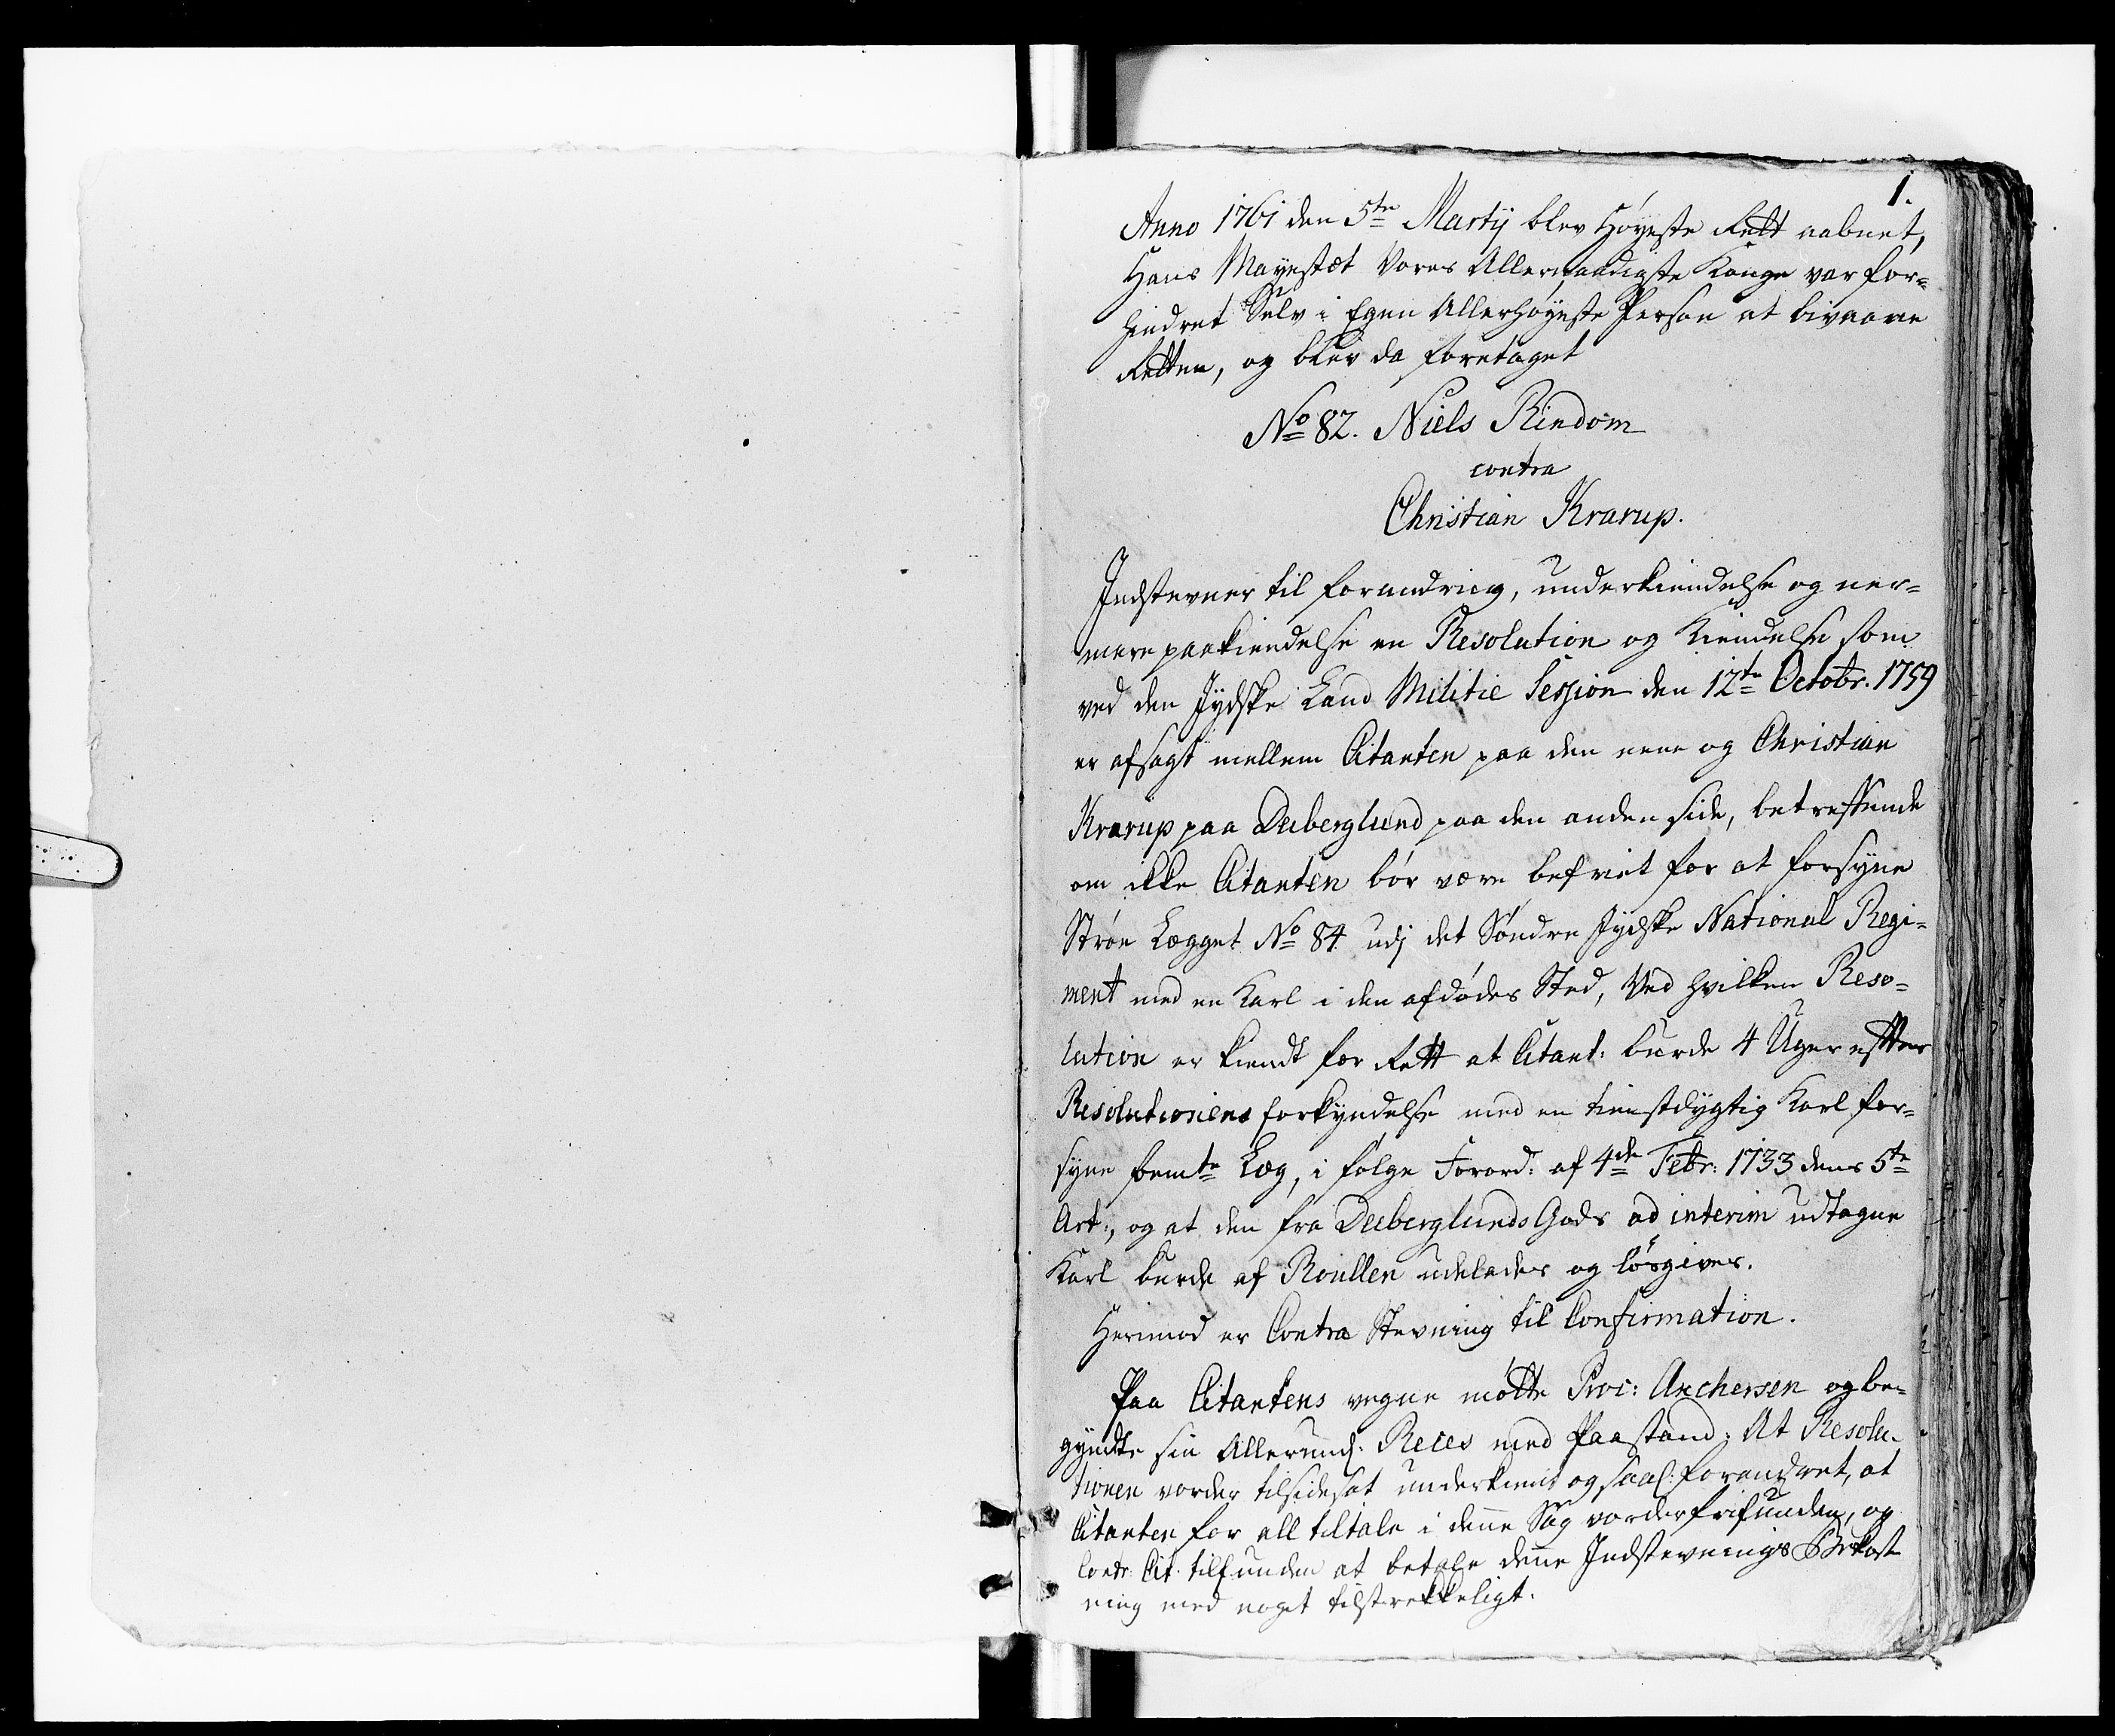 1.
Anno 1761 den 5te Martij blev Høyeste Rett aabnet,
Hans Mayestæt Vores Allernaadigste Konge var for=
hindret Selv i Egen Allerhøyeste Person at bivaane
Retten, og blev da foretaget
No 82. Niels Rindom
contra
Christian Krarup.
Indstevner til forandring, underkiendelse og ner=
mere paakiendelse en Resolution og Kiendelse som
ved den Jydske Land Militie Session den 12te Octobr. 1759
er afsagt mellem Citanten paa den eene og Christian
Krarup paa Deiberglund paa den anden side, betreffende
om ikke Citanten bør være befriet for at forsyne
Strøe Legget No 84 udj det Søndre Jydske National Regi=
ment med en Karl i den afdødes Sted, Ved hvilken Reso=
lution er kiendt for Rett at Citant: burde 4 Uger efter
Resolutionens forkyndelse med en tienstdygtig Karl for=
syne bemte Læg, i følge Forord: af 4de Febr: 1733 dens 5te
Art:, og at den fra Deiberglunds Gods ad interim udtagne
Karl burde af Roullen udelades og løsgives.
Herimod er Contra Stevning til Confirmation.
Paa Citantens vegne mødte Proc: Anchersen og be=
gyndte sin Allerund: Reces med Paastand: At Resolu-
tionen vorder tilsidesat underkiendt og saal: forandret, at
Citanten for all tiltale i denne Sag vorder frifunden, og
Contr: Cit. tilfunden at betale denne Indstevnings Bekost
ning med noget tilstrekkeligt.